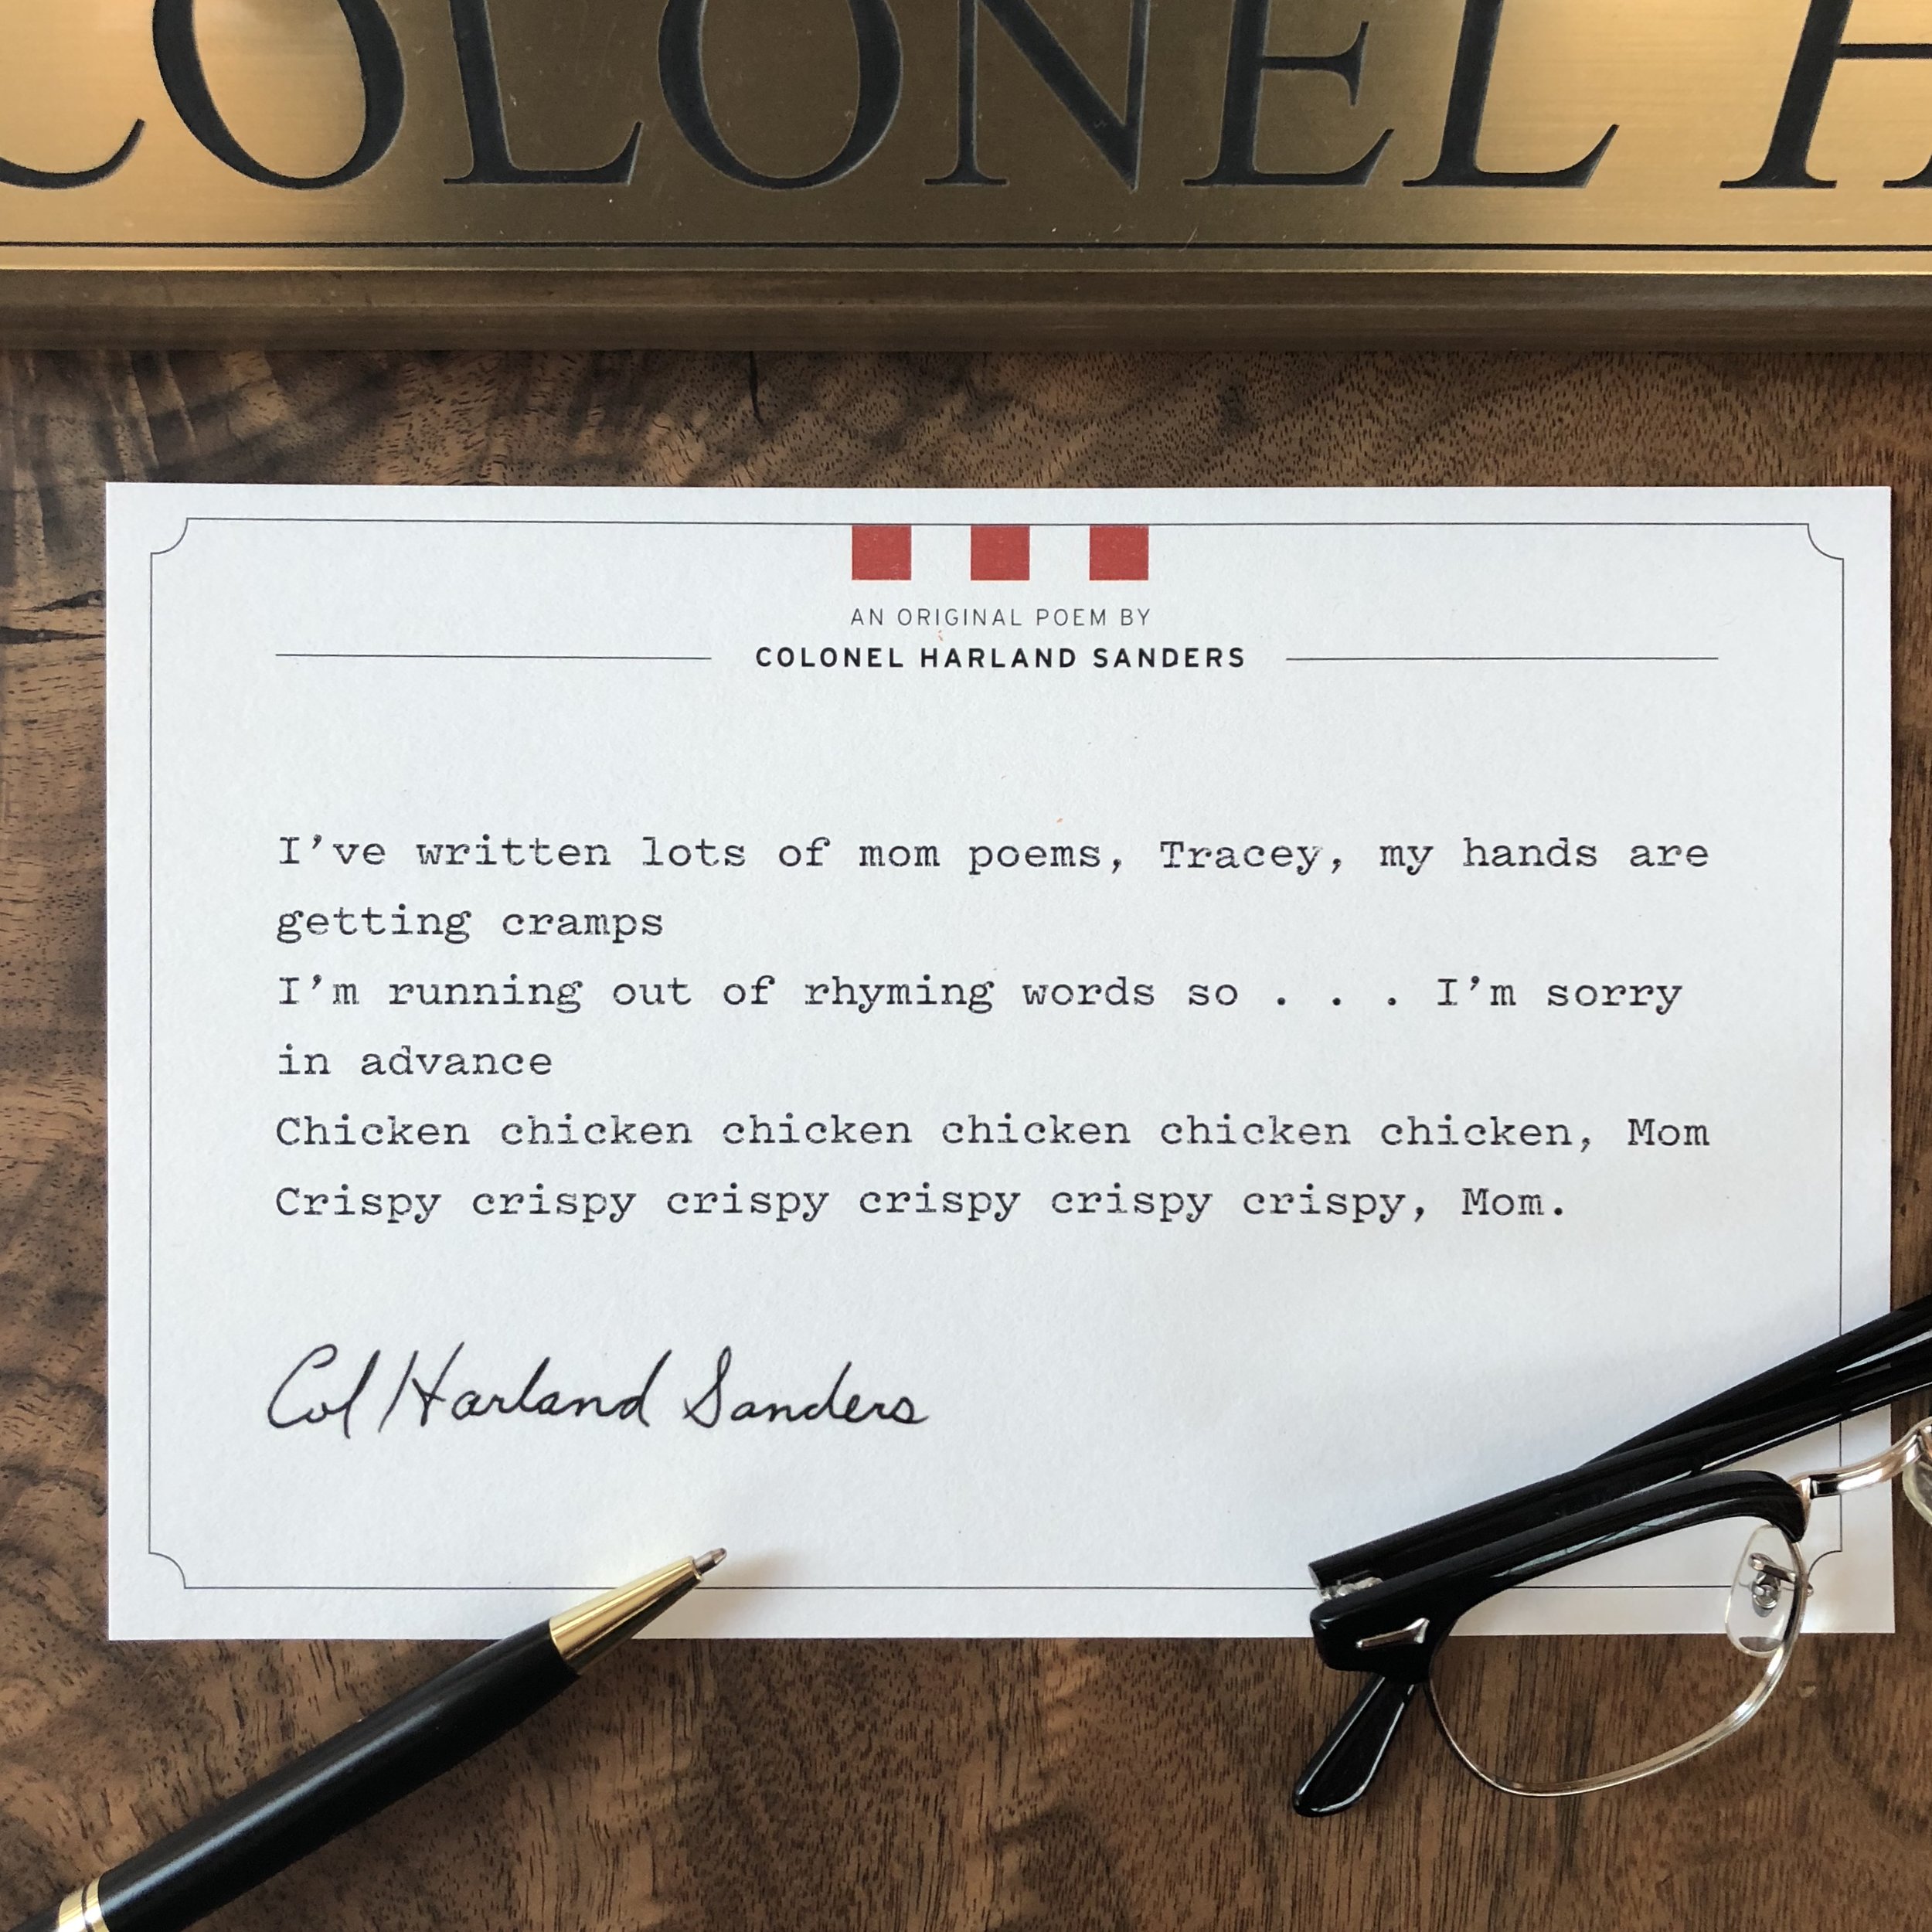 COLONEL H
AN ORIGINAL POEM BY
COLONEL HARLAND SANDERS
I’ve written lots of mom poems, Tracey, my hands are
getting cramps
I’m running out of rhyming words so . . . I’m sorry
in advance
Chicken chicken chicken chicken chicken chicken, Mom
Crispy crispy crispy crispy crispy crispy, Mom.
Col Harland Sanders